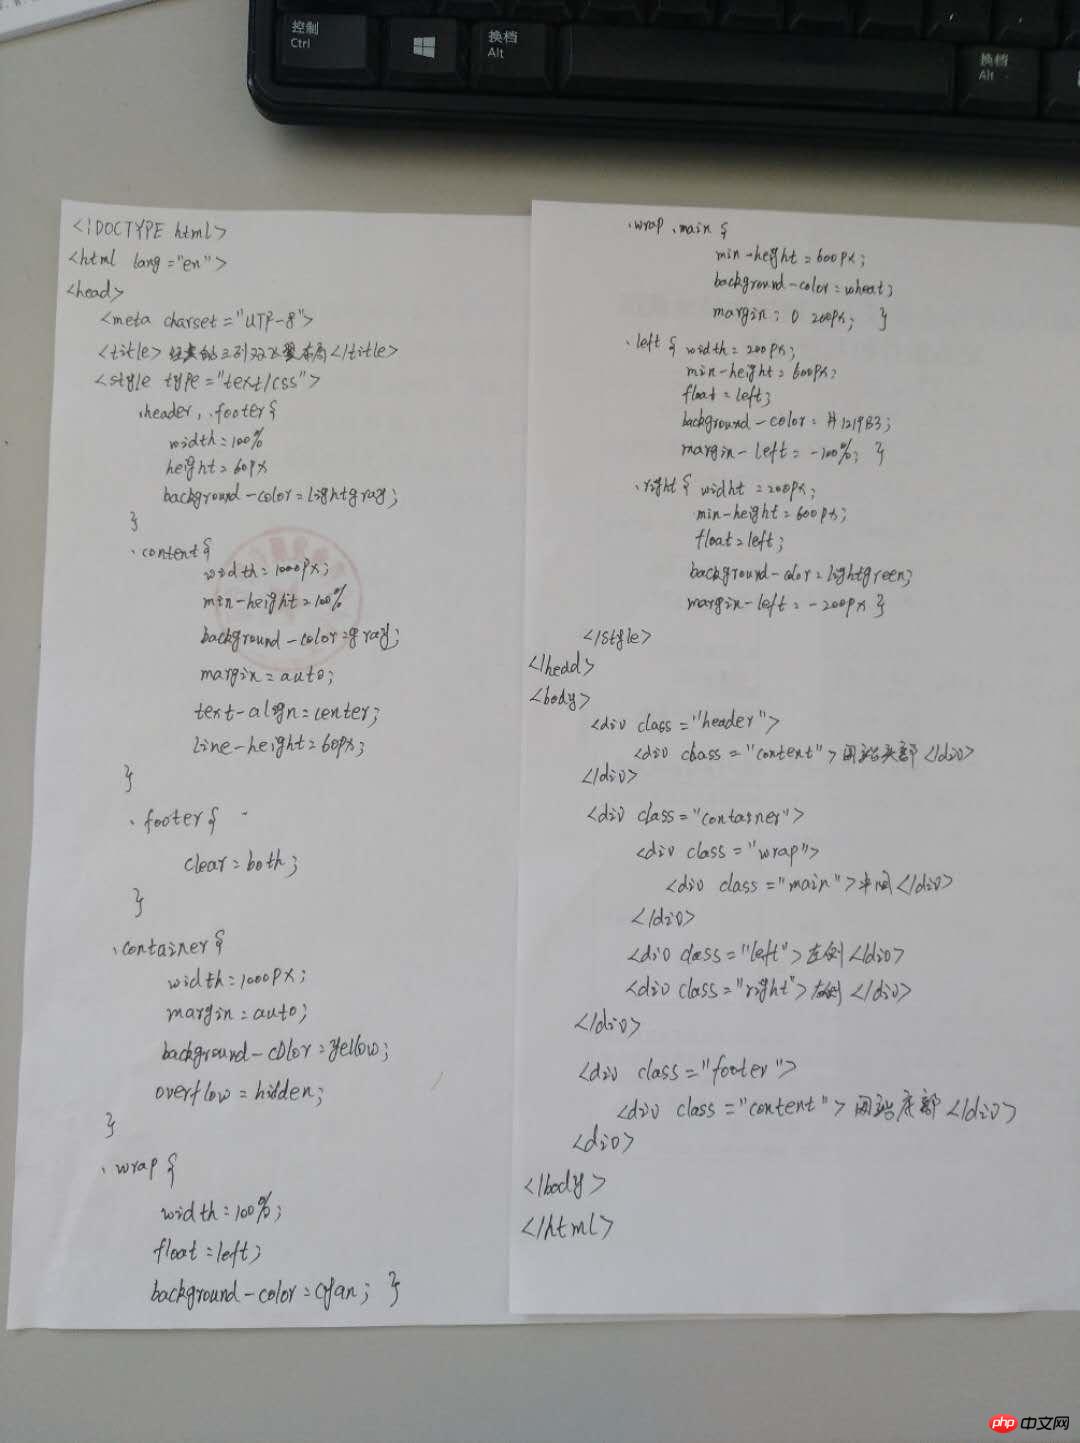 控制
Ctrl
换档
Alt
换档
Alt
<!DOCTYPE html>
<html lang="en">
<head>
<meta charset="UTF-8">
<title>经典的三列双飞翼布局</title>
<style type="text/css">
.header, .footer{
width=100%
height=60px
background-color=lightgray;
}
.content{
width=1000px;
min-height=100%
background-color=gray;
margin=auto;
text-align=center;
line-height=60px;
}
.footer{
clear=both;
}
.container{
width=1000px;
margin=auto;
background-color=yellow;
overflow=hidden;
}
.wrap{
width=100%;
float=left;
background-color=cyan; }
.wrap .main{
min-height=600px;
background-color=wheat;
margin: 0 200px; }
.left{ width=200px;
min-height=600px;
float=left;
background-color=#1219B3;
margin-left=-100%; }
.right{ widht=200px;
min-height=600px;
float=left;
background-color=lightgreen;
margin-left=-200px }
</style>
</head>
<body>
<div class="header">
<div class="content">网站头部</div>
</div>
<div class="container">
<div class="wrap">
<div class="main">中间</div>
</div>
<div class="left">左侧</div>
<div class="right">右侧</div>
</div>
<div class="footer">
<div class="content">网站底部</div>
<div>
</body>
</html>
php 中文网